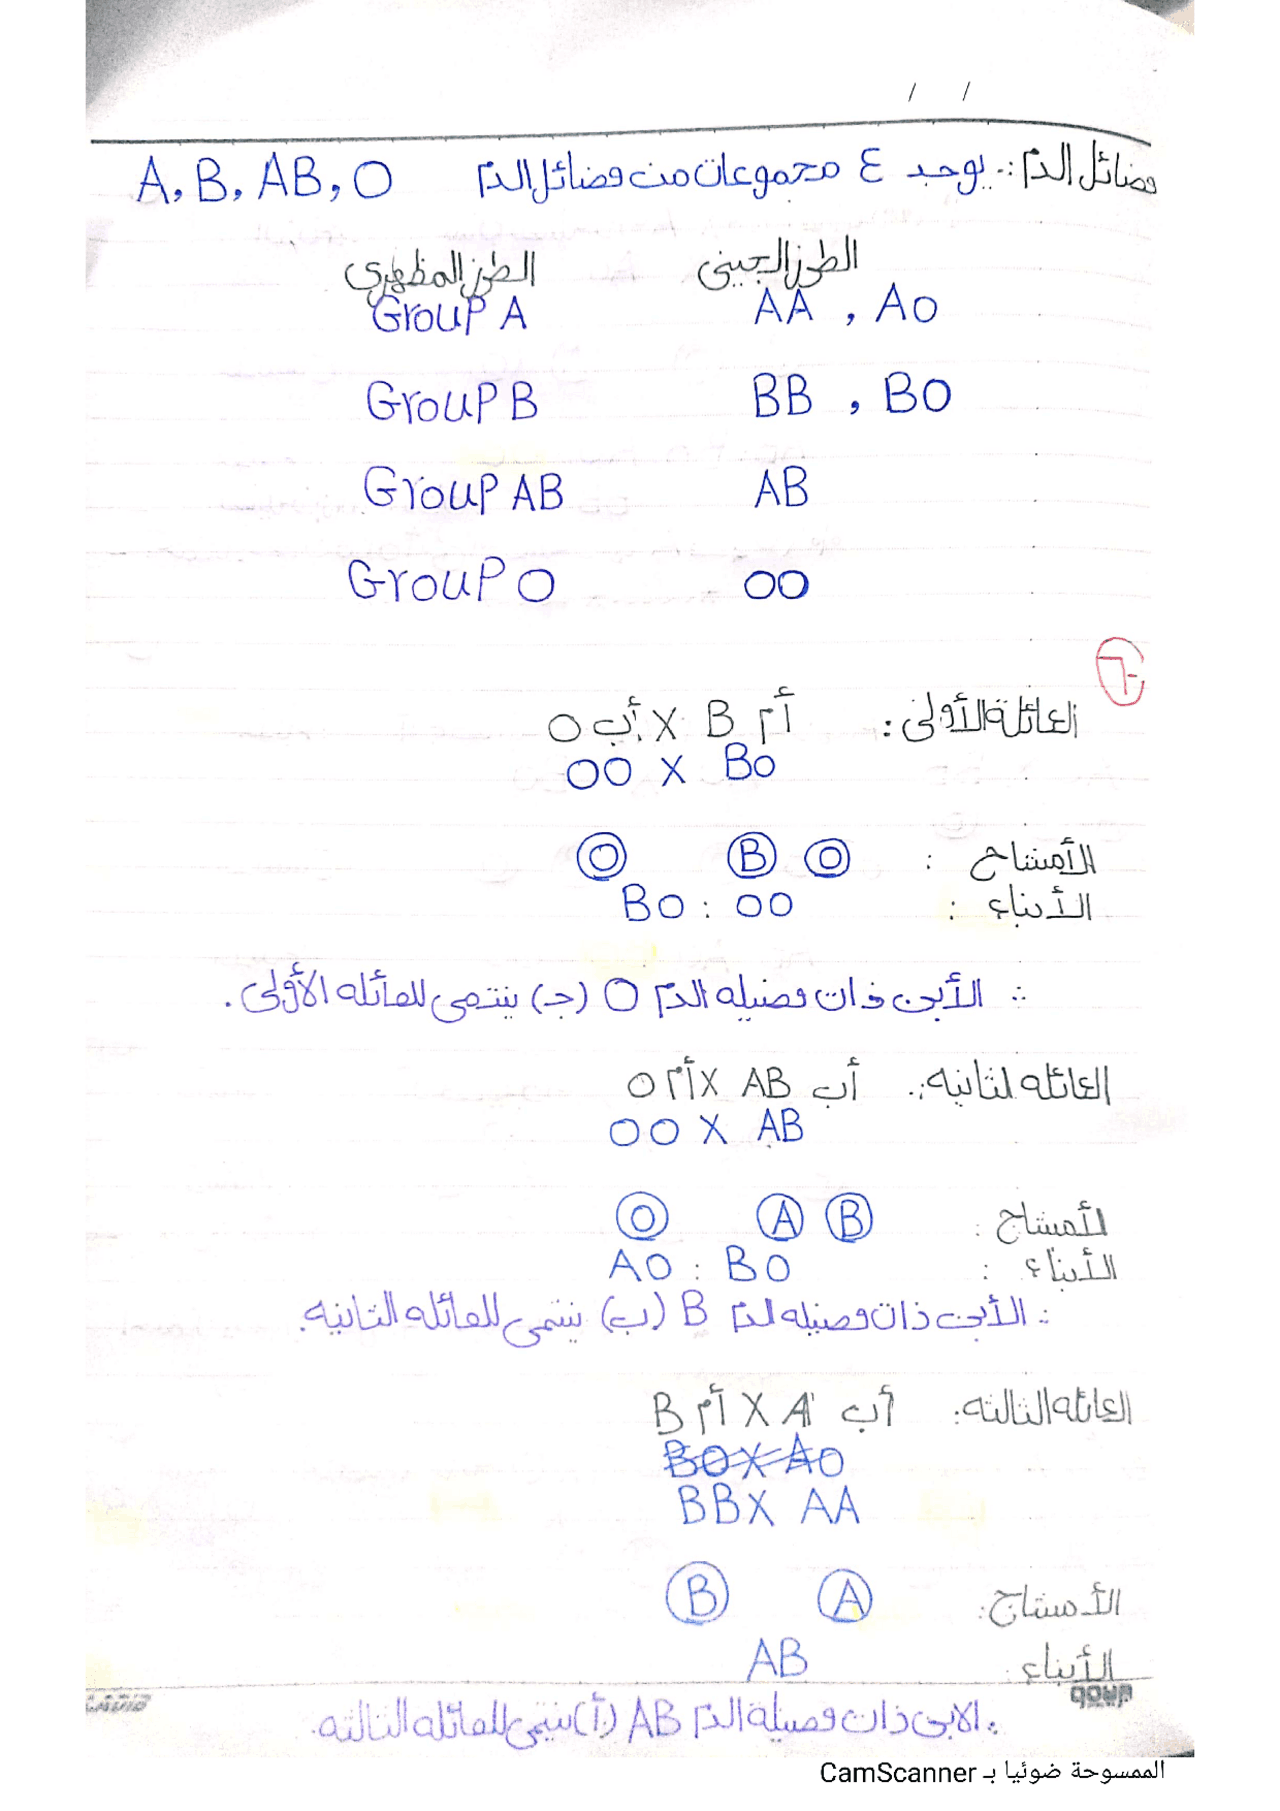 / /
فصائل الدم :- يوجد ٤ مجموعات من فصائل الدم A, B, AB, O
الطرز الجينى الطرز المظهري
AA , Ao Group A
BB , BO Group B
AB Group AB
OO Group O
٦-
العائلة الأولى : أم B X أب O
Bo X OO
الأمشاج : O B O
الأبناء : Bo : OO
∴ الأبن ذات فصيله الدم O (جـ) ينتمى للعائله الأولى .
العائله لثانيه :. أب AB X أم O
AB X OO
الأمشاج : B A O
الأبناء : AO : BO
∴ الأبن ذات فصيله لدم B (ب) ينتمى للعائله الثانيه.
العائله الثالثه: أب A X أم B
BO X AO
BB X AA
الأمشاج: A B
الأبناء : AB
∴ الابن ذات فصيلة الدم AB (أ) ينتمى للعائله الثالثه.
الممسوحة ضوئيا بـ CamScanner